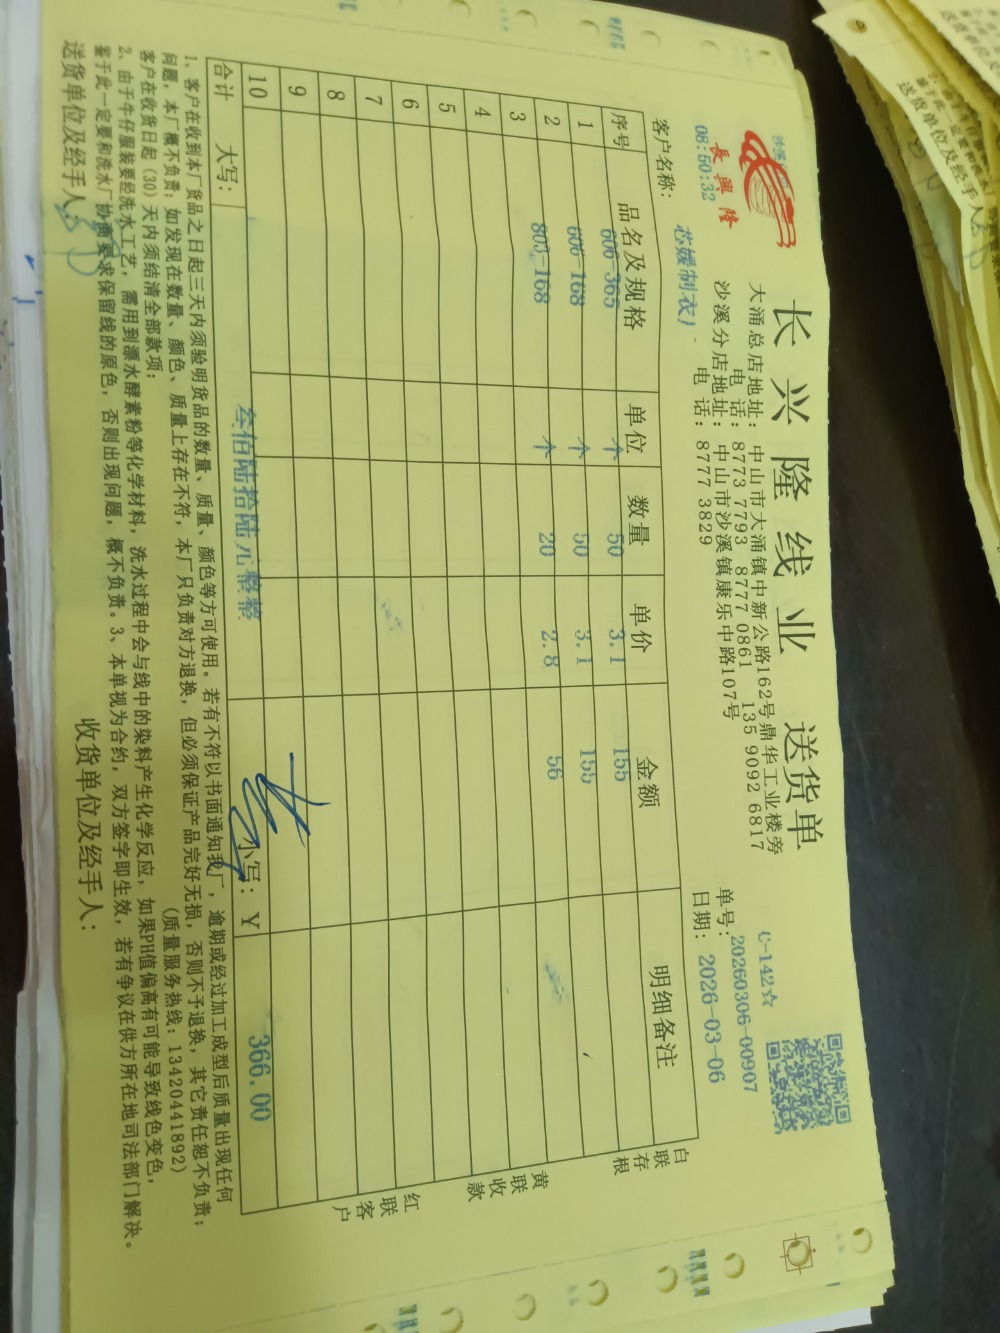 长兴隆线业 送货单
長興隆
08:50:32
大涌总店地址: 中山市大涌镇中新公路162号鼎华工业楼旁
电 话: 8773 7793 8777 0861 135 9092 6817
沙溪分店地址: 中山市沙溪镇康乐中路107号
电 话: 8777 3829
C-142☆
单号: 20260306-00907
日期: 2026-03-06
客户名称: 芯媛制衣厂
序号 品名及规格 单位 数量 单价 金额 明细备注
1 606-365 个 50 3.1 155
2 606-168 个 50 3.1 155
3 803-168 个 20 2.8 56
4
5
6
7
8
9
10
合计 大写: 叁佰陆拾陆元整整 小写: Y 366.00
白联存根
黄联收款
红联客户
1、客户在收到本厂货品之日起三天内须验明货品的数量、质量、颜色等方可使用。若有不符以书面通知我厂, 逾期或经过加工成型后质量出现任何
问题, 本厂概不负责; 如发现在数量、颜色、质量上存在不符, 本厂只负责对方退换, 但必须保证产品完好无损, 否则不予退换, 其它责任恕不负责;
客户在收货日起 (30) 天内须结清全部款项; (质量服务热线: 13420441892)
2、由于牛仔服装要经洗水工艺, 需用到漂水酵素粉等化学材料, 洗水过程中会与线中的染料产生化学反应, 如果PH值偏高有可能导致线色变色,
鉴于此一定要和洗水厂协商要求保留线的原色, 否则出现问题, 概不负责。3、本单视为合约, 双方签字即生效, 若有争议在供方所在地司法部门解决。
送货单位及经手人: 收货单位及经手人:
送货单位及经手人